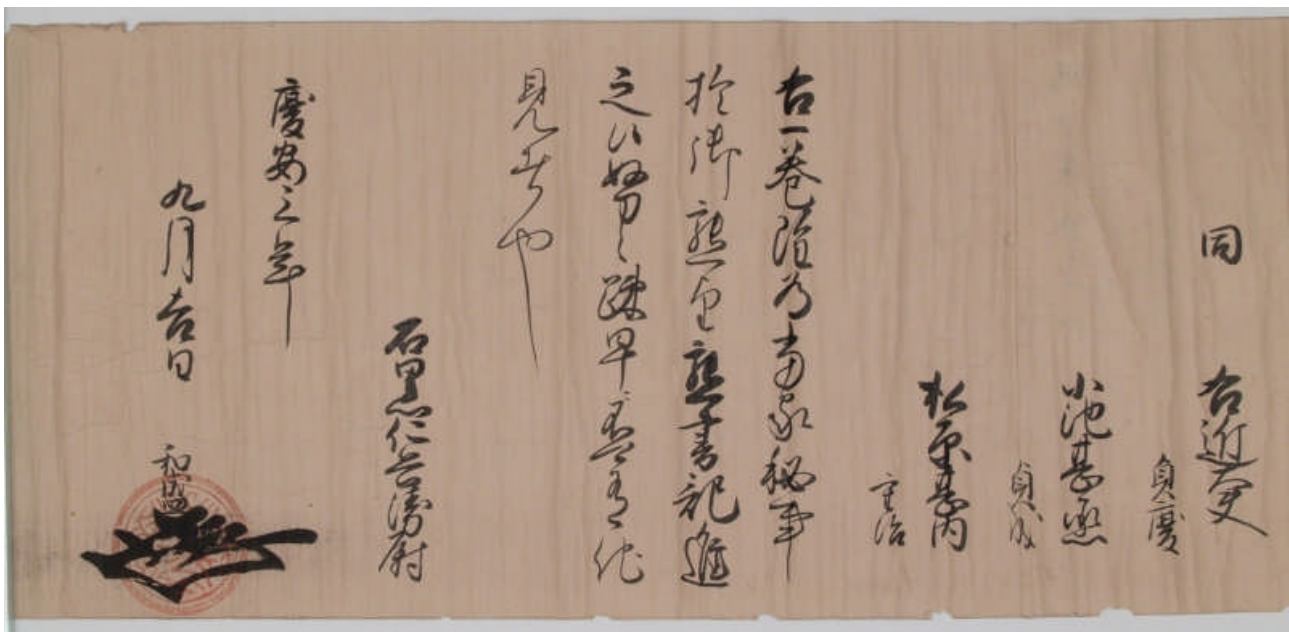 同 右近大夫
貞慶
小池甚之丞
貞成
松原甚内
重治
右一巻雖為当家秘事
於御懇望懇書記進
之候努々疎早不可有他
見者也
石黒仁兵衛尉
慶安三年
九月吉日 和成